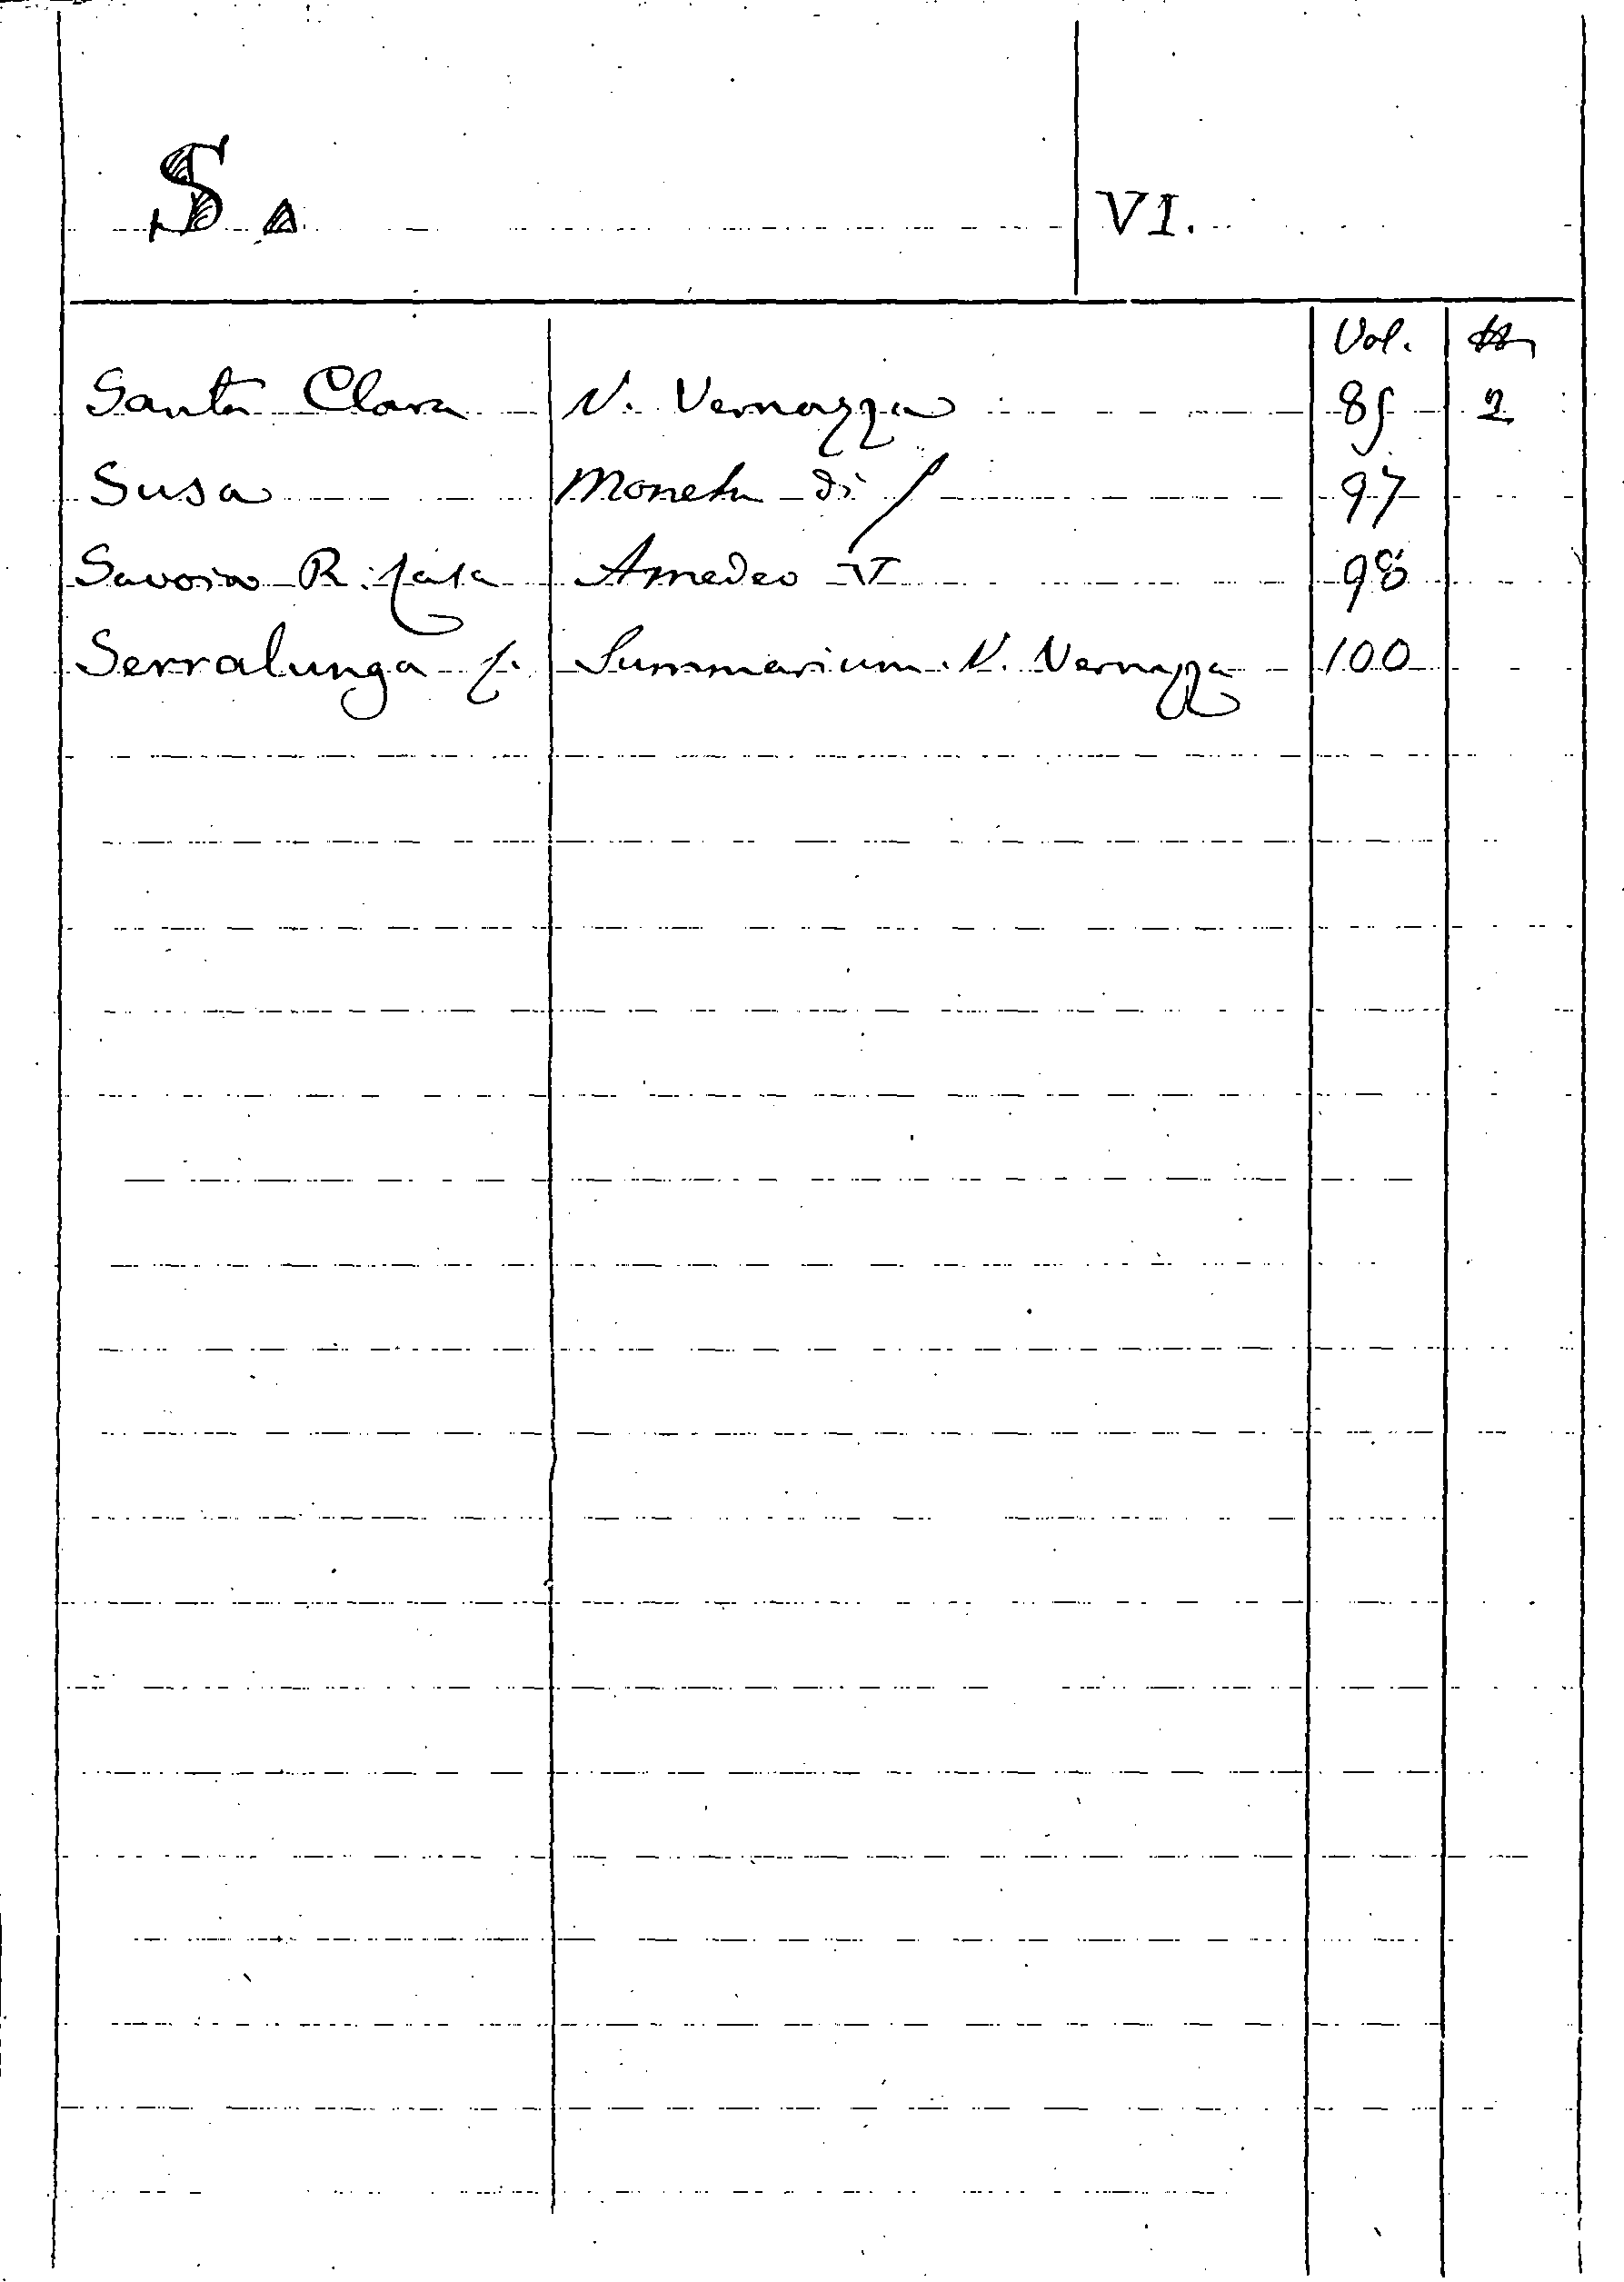 S. VI.
Vol. #
Santa Clara N. Vernazza 85 2
Susa Moneta di 97
Savoia Amedeo V 98
Serralunga f. Summarium. N. Vernazza 100